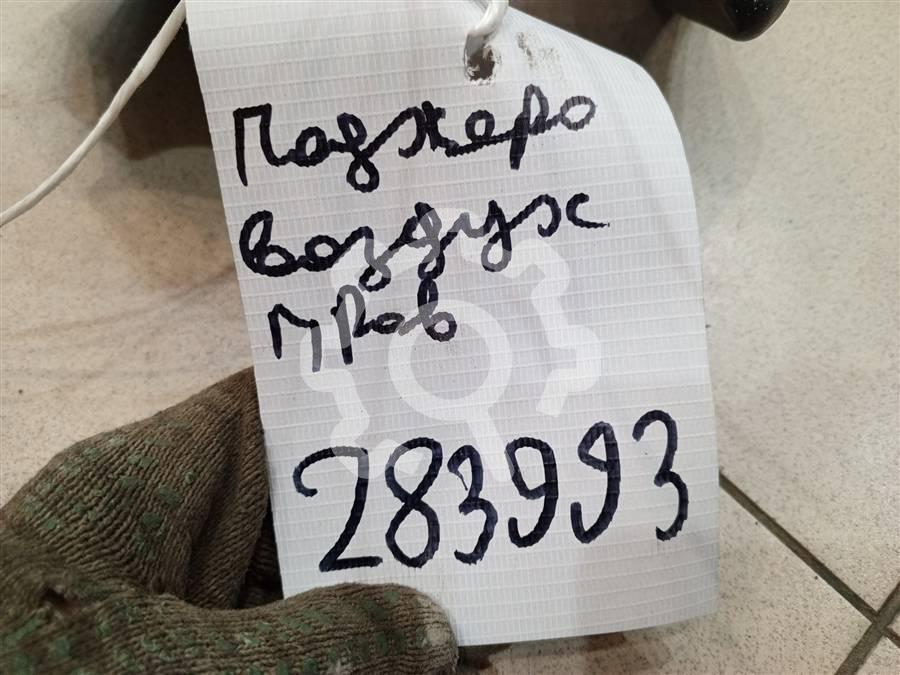 Паджеро
воздух
прав
283993